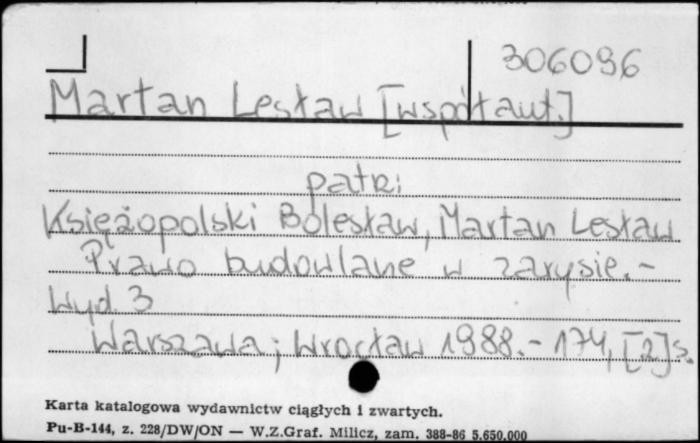 306096
Martan Lesław [współaut.]
patrz
Księżopolski Bolesław, Martan Lesław
Prawo budowlane w zarysie.-
Wyd. 3
Warszawa; Wrocław 1988.- 174, [2] s.
Karta katalogowa wydawnictw ciągłych i zwartych.
Pu-B-144, z. 228/DW/ON — W.Z.Graf. Milicz, zam. 388-86 5.650.000